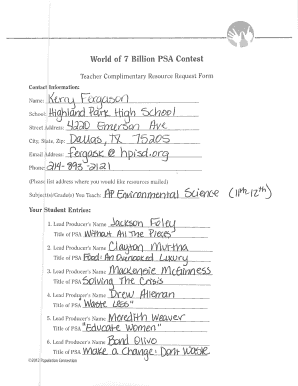 World of 7 Billion PSA Contest
Teacher Complimentary Resource Request Form
Contact Information:
Name: Kerry Ferguson
School: Highland Park High School
Street Address: 4220 Emerson Ave
City, State, Zip: Dallas, TX 75205
Email Address: fergusk@hpisd.org
Phone: 214-893-2121
(Please list address where you would like resources mailed)
Subject(s)/Grade(s) You Teach: AP Environmental Science (11th, 12th)
Your Student Entries:
1. Lead Producer's Name Jackson Foley
Title of PSA "Without All The Pieces"
2. Lead Producer's Name Clayton Murtha
Title of PSA "Food: An Overlooked Luxury"
3. Lead Producer's Name Mackensie McGinness
Title of PSA "Solving The Crisis"
4. Lead Producer's Name Drew Alleman
Title of PSA "Waste Less"
5. Lead Producer's Name Meredith Weaver
Title of PSA "Educate Women"
6. Lead Producer's Name Olivo
Title of PSA "Make a Change: Dont Waste"
Population Connection